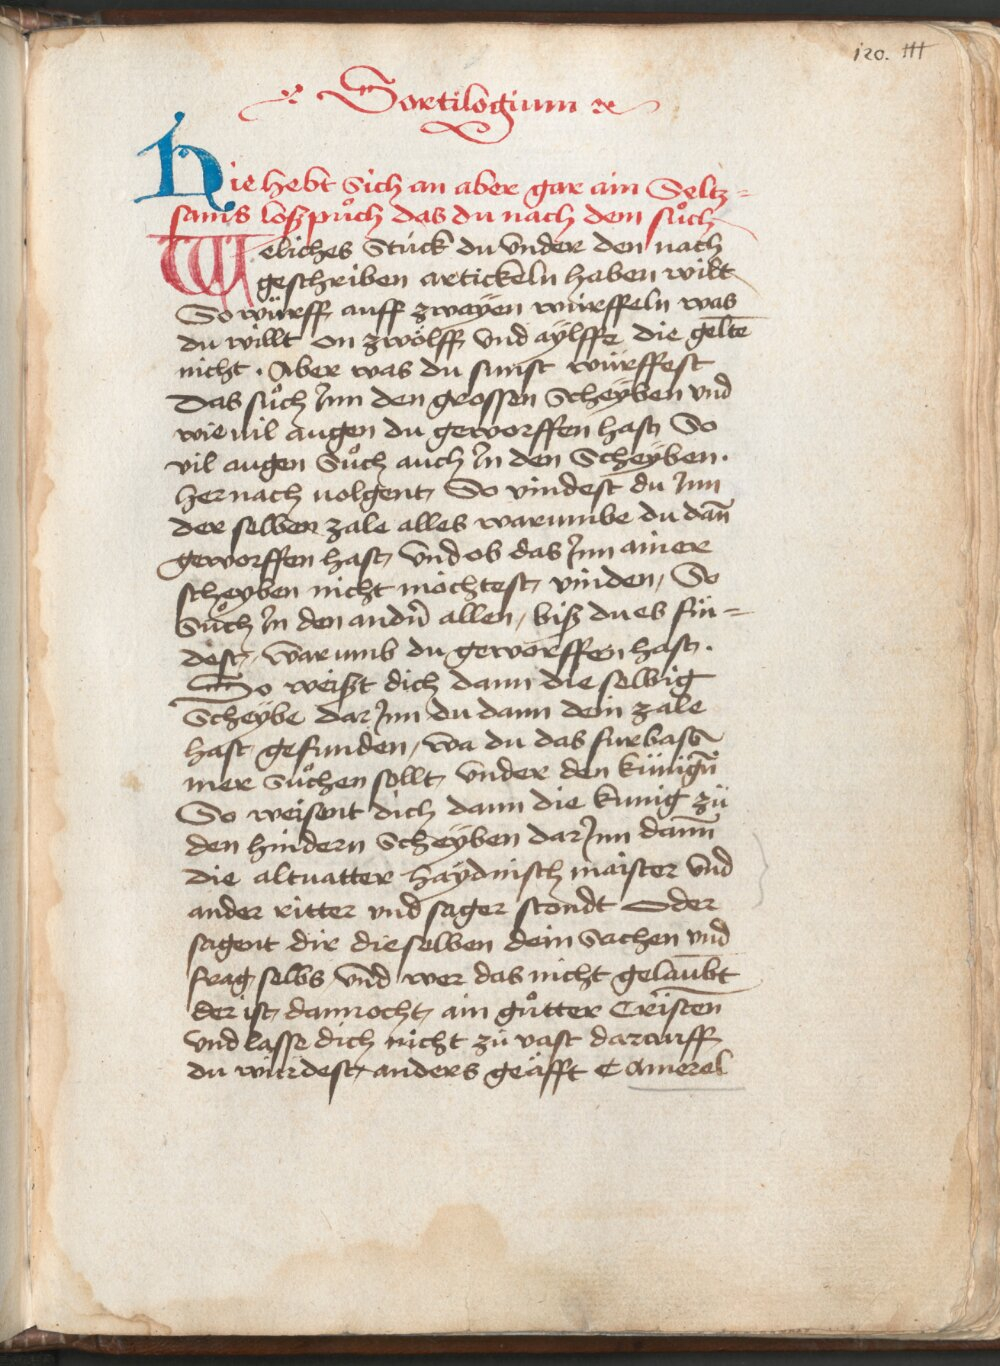 120. III
Sortilogium
Hie hebt sich an aber gar ain Seltz=
sams loßpůch das du nach dem sůch
Weliches Stuck du vnder den nach
geschriben artickeln haben wilt
So würff auff zwayen würffeln was
du willt on zwölff vnd aylffe die gelten̄
nicht. Aber was du sunst würffest
Das sůch Inn den grossen Scheyben vnd
wie uil augen du geworffen hast So
vil augen Sůch auch In den Scheyben.
hernach uolgent, So vindest du Inn
der selben zale alles warumbe du dan̄
geworffen hast, vnd ob das Inn ainer
scheyben nicht möchtest, vinden, So
Sůch In den andn̄ allen, biß du es fin=
dest, warumb du geworffen hast.
So weißt dich dann die selbig
Scheybe dar Inn du dann dein zale
hast gefunden, wa du das furbass
mer Sůchen sollt, vnder den künign̄
So weisent dich dann die kunig zü
den hindern Scheyben dar Inn dann̄
die altuatter haydnisch maister vnd
ander ritter vnd sager stondt Oder
sagent dir dieselben dein Sachen vnd
frag selbs, vnd wer das nicht gelaubt
der ist, dannocht, ain gůtter Cristen
vnd lasse dich nicht zü vast darauff
du würdest, anders geäfft Amerel